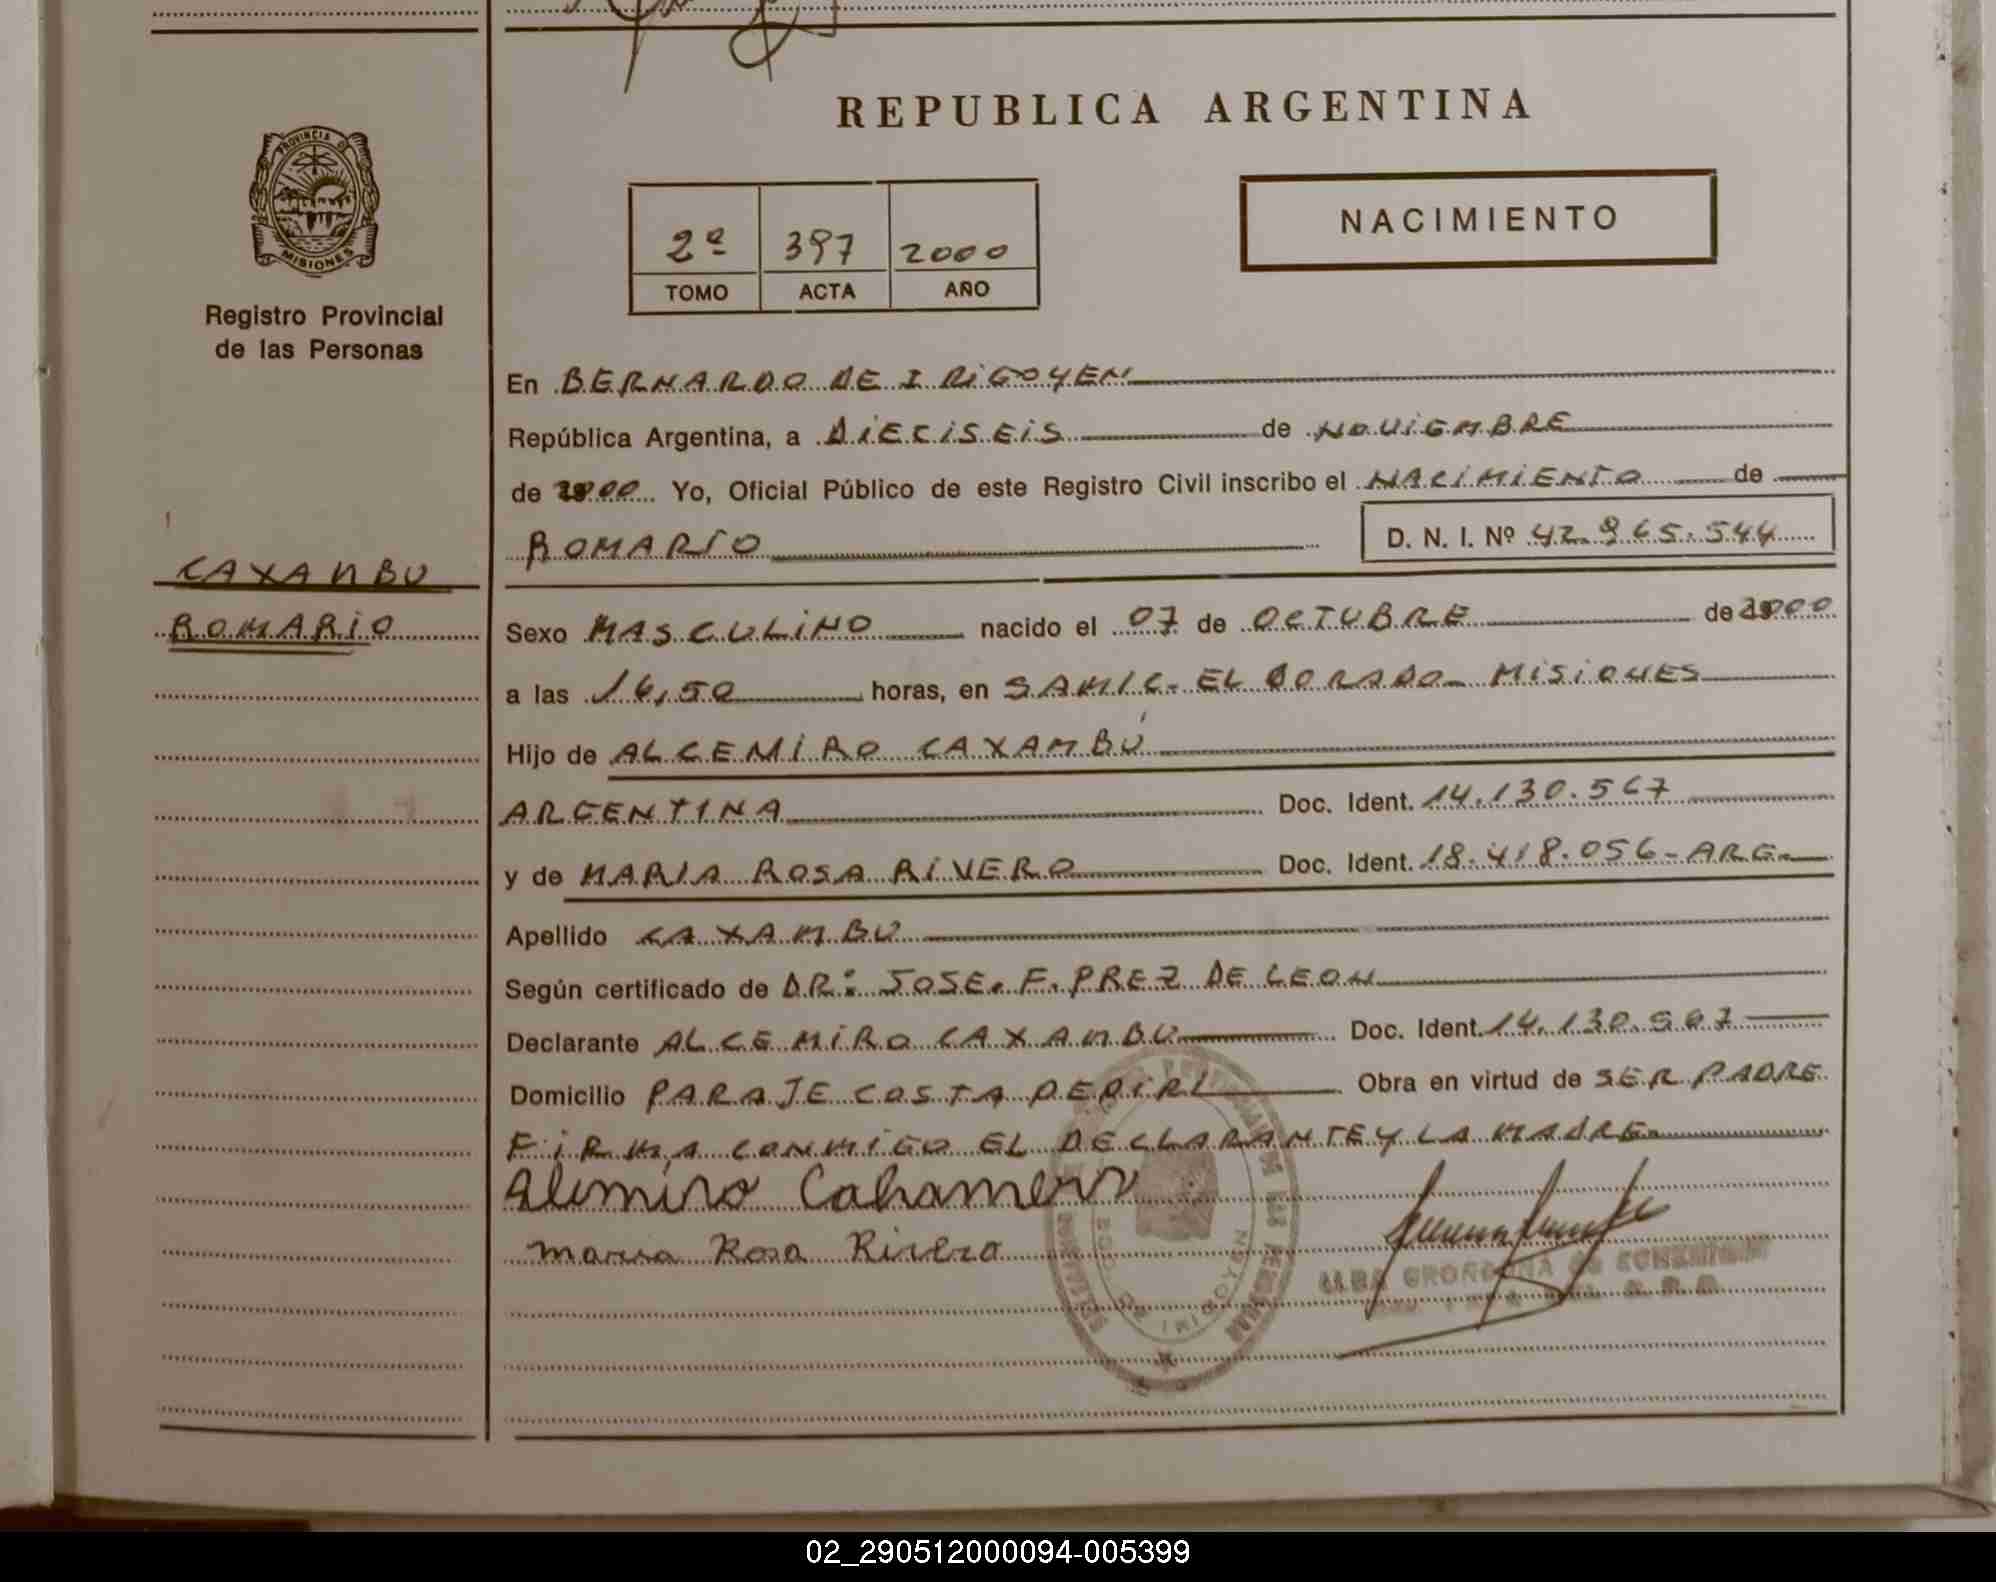 REPUBLICA ARGENTINA
PROVINCIA DE
MISIONES
2º 397 2000
TOMO ACTA AÑO
NACIMIENTO
Registro Provincial
de las Personas
En BERNARDO DE IRIGOYEN
República Argentina, a DIECISEIS de NOVIEMBRE
de 2000 Yo, Oficial Público de este Registro Civil inscribo el NACIMIENTO de
ROMARIO D. N. I. Nº 42.965.544
CAXANBU
ROMARIO
Sexo MASCULINO nacido el 07 de OCTUBRE de 2000
a las 16,50 horas, en SAMIC- EL DORADO- MISIONES
Hijo de ALCEMIRO CAXAMBÚ
ARGENTINA Doc. Ident. 14.130.567
y de MARIA ROSA RIVERO Doc. Ident. 18.418.056-ARG-
Apellido CAXAMBU
Según certificado de DR: JOSE. F. PREZ DE LEON
Declarante ALCEMIRO CAXAMBU Doc. Ident. 14.130.567
Domicilio PARAJE COSTA PEPIRI Obra en virtud de SER PADRE
FIRMA CONMIGO EL DECLARANTE Y LA MADRE-
Rosa
IRIGOYEN
02_290512000094-005399